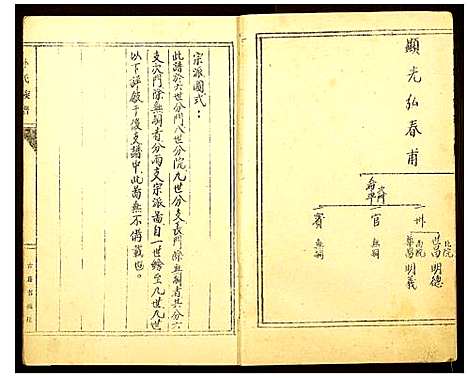 顯光弘春甫
宗派圖式：
此譜於六世分門八世分院九世分支長門除無嗣者共分六
支次門除無嗣者分兩支宗派啚自一世繕至九世九世
以下詳敘于後支譜中此啚無不備載也。
官
無嗣
賓
無嗣
北院
世昌
明德
南院
明義